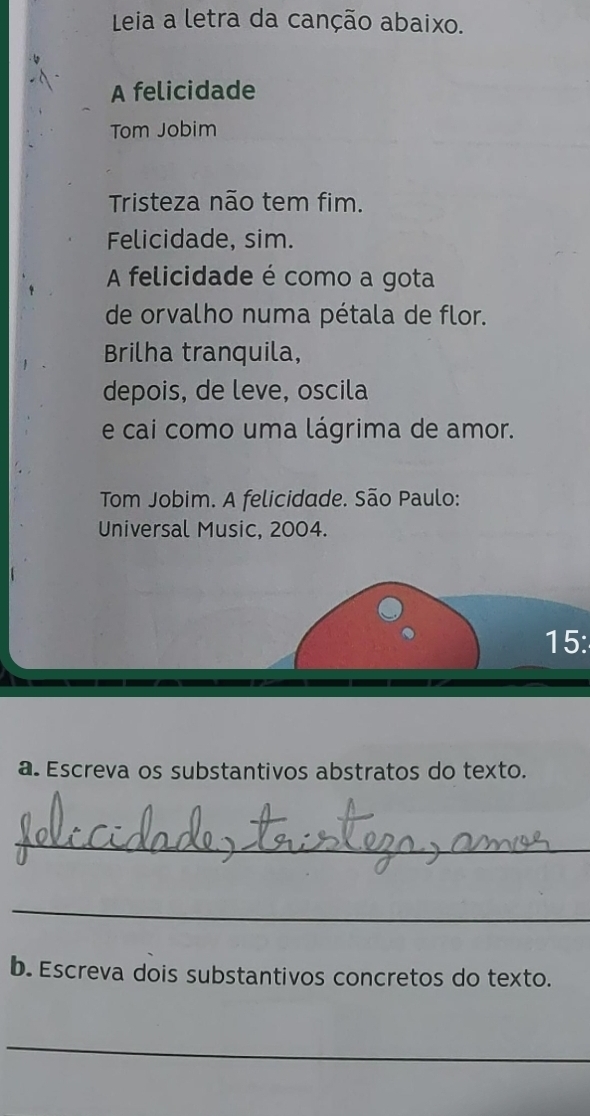 Leia a letra da canção abaixo.
A felicidade
Tom Jobim
Tristeza não tem fim.
Felicidade, sim.
A felicidade é como a gota
de orvalho numa pétala de flor.
Brilha tranquila,
depois, de leve, oscila
e cai como uma lágrima de amor.
Tom Jobim. A felicidade. São Paulo:
Universal Music, 2004.
15:
a. Escreva os substantivos abstratos do texto.
felicidade, tristeza, amor
b. Escreva dois substantivos concretos do texto.